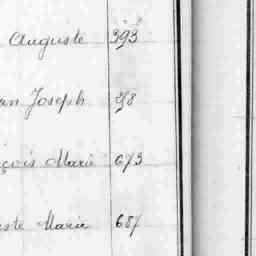 Auguste 393
an Joseph 378
çois Marie 673
ste Marie 687